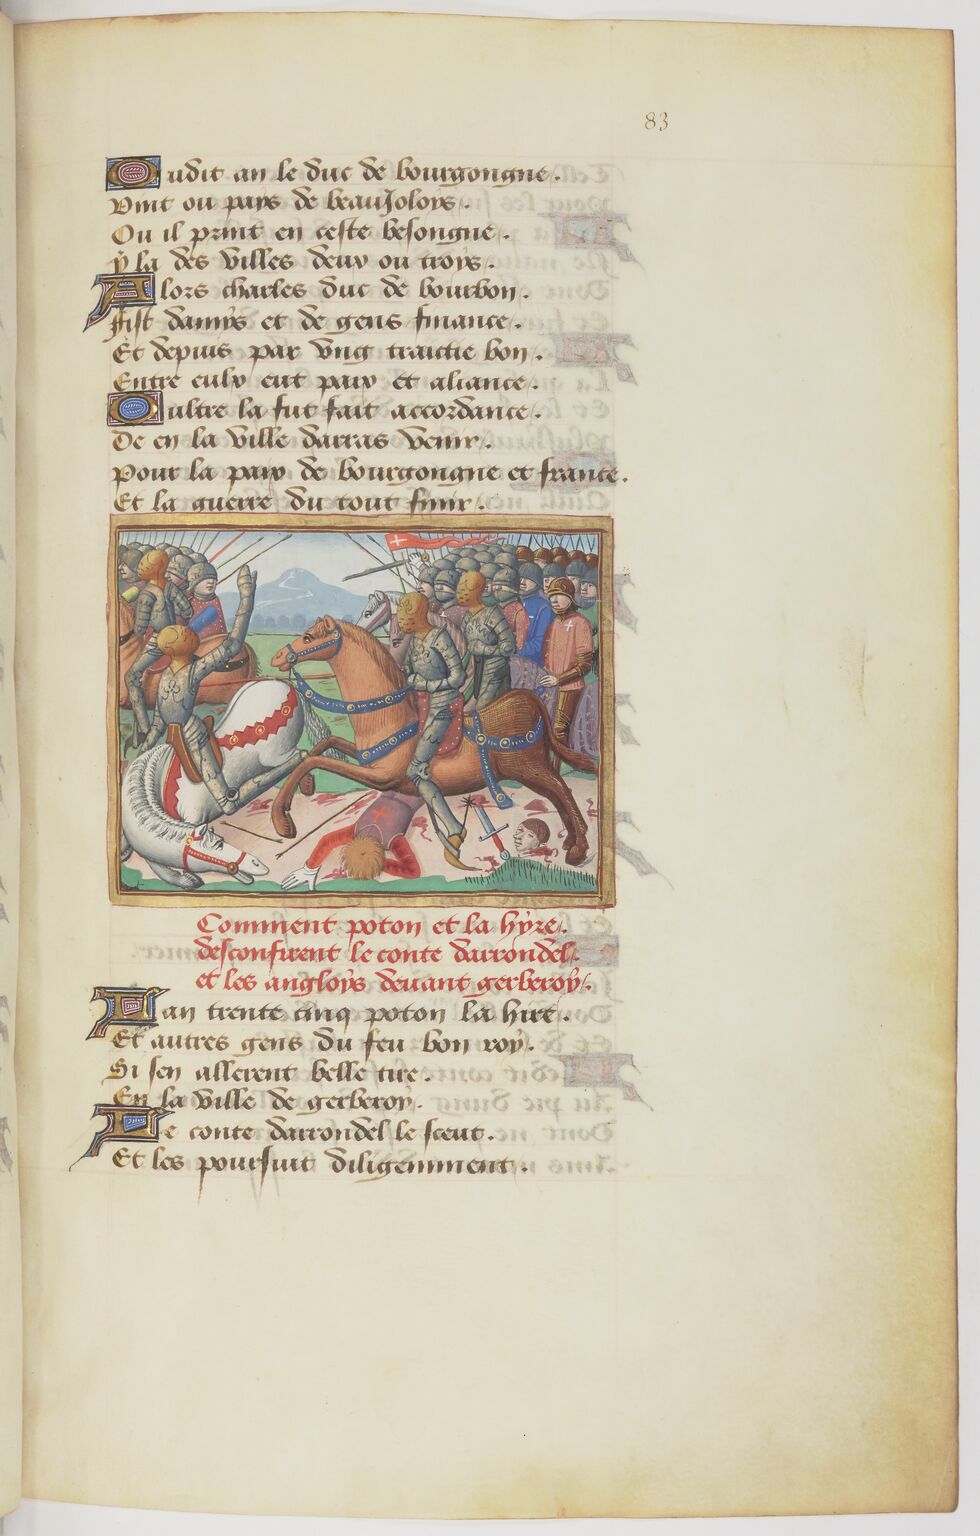 83
Oudit an le duc de bourgongne.
Vint ou pays de beauJoloys.
Ou il print en ceste besongne.
Y la des villes deux ou troys.
Alors charles duc de bourbon.
Fist damys et de gens finance.
Et depuis par vng traictie bon.
Entre eulx eut paix et aliance.
Oultre la fut fait accordance.
De en la ville darras venir.
Pour la paix de bourgongne et france.
Et la guerre du tout finir.
Comment poton et la hyre.
desconfirent le conte darrondel.
et les angloys deuant gerberoy.
Lan trente cinq poton la hire.
Et autres gens du feu bon roy.
Si sen allerent belle tire.
En la ville de gerberoy.
Le conte darrondel le sceut.
Et les poursuit diligemment.